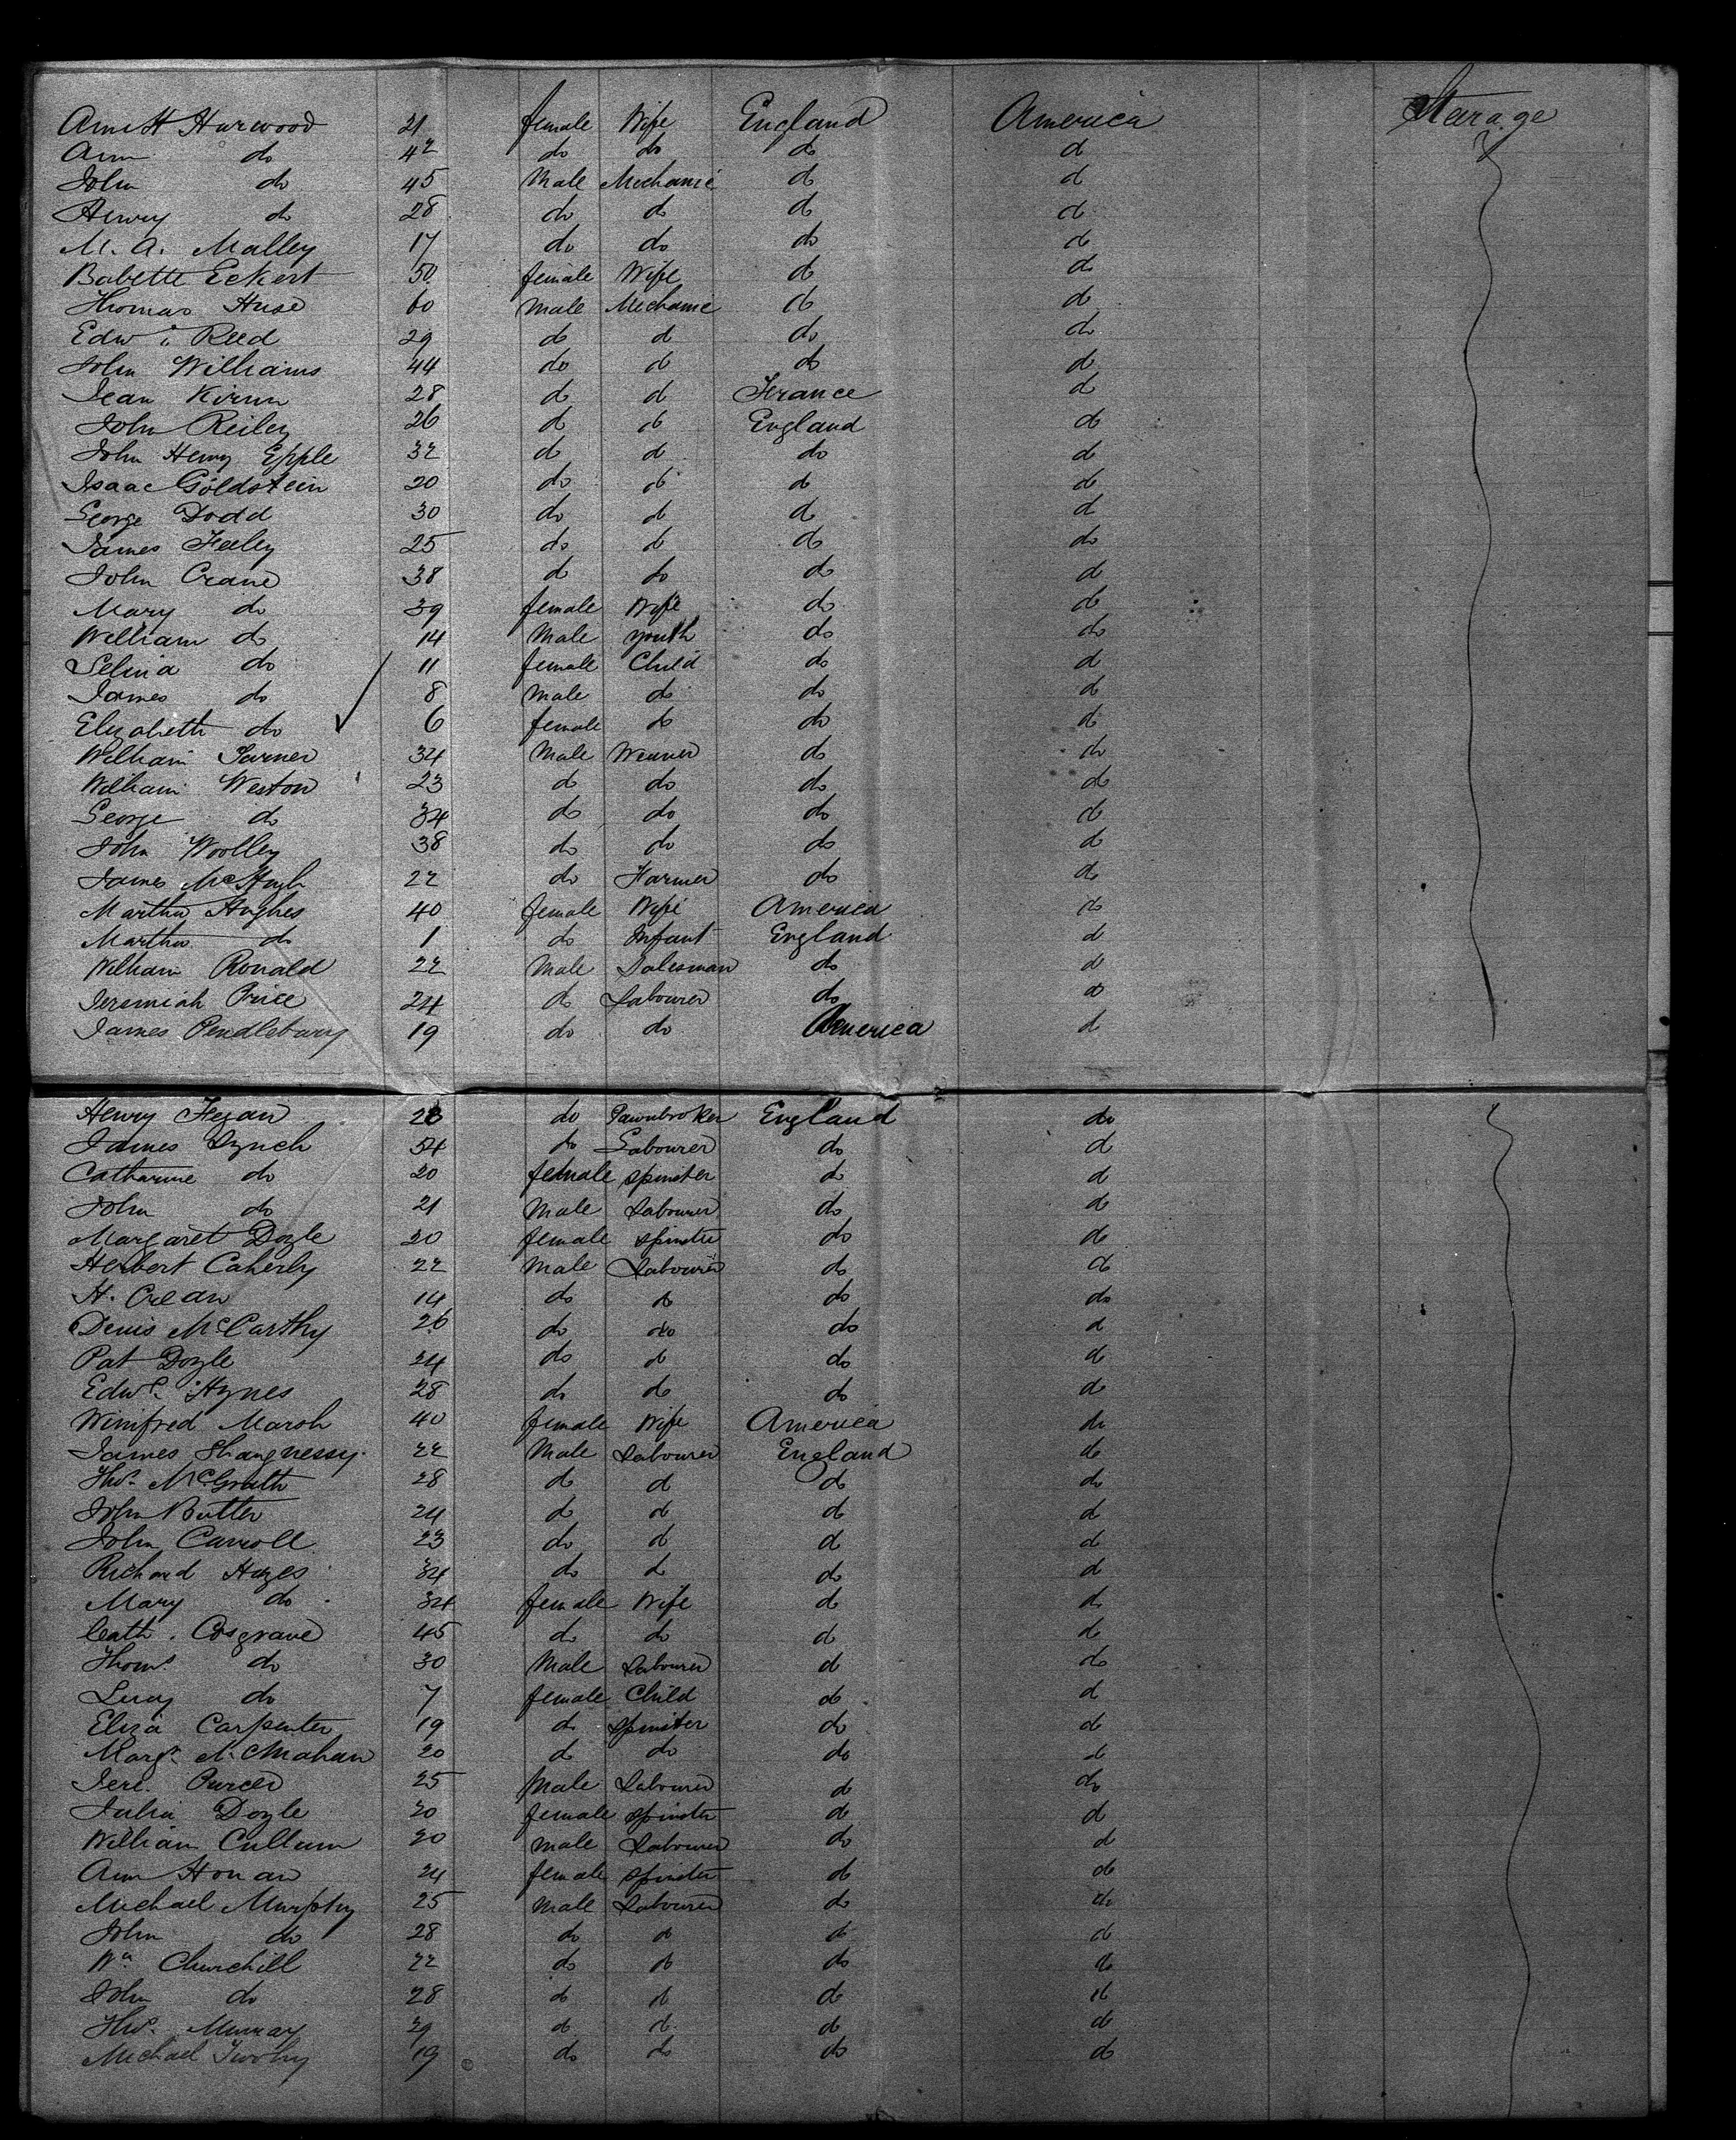 Ann H Harwood 21 female Wife England America Stearage
Ann do 42 do do do do
John do 45 Male Mechanic do do
Henry do 28 do do do do
M. A. Malley 17 do do do do
Babette Eckert 50 female Wife do do
Thomas Huse 60 Male Mechanic do do
Edwd Reed 29 do do do do
John Williams 44 do do do do
Jean Kirnn 28 do do France do
John Reiley 26 do do England do
John Henry Epple 32 do do do do
Isaac Goldstein 20 do do do do
George Dodd 30 do do do do
James Feeley 25 do do do do
John Crane 38 do do do do
Mary do 39 female Wife do do
William do 14 Male youth do do
Selina do 11 female Child do do
James do 8 Male do do do
Elizabeth do 6 female do do do
William 34 Male Weaver do do
William Weston 23 do do do do
George do 34 do do do do
John Woolley 38 do do do do
James McHugh 22 do Farmer do do
Martha Hughes 40 female Wife America do
Martha do 1 do Infant England do
William Ronald 22 Male Salesman do do
Jeremiah Price 24 do Labourer do do
James Pendlebury 19 do do America do
Henry Fegan do Pawnbroker England do
James Lynch 54 do Labourer do do
Catharine do 20 female spinster do do
John do 21 Male Labourer do do
Margaret Doyle 20 female spinster do do
Herbert Caherly 22 Male Labourer do do
H. Crean 14 do do do do
Denis McCarthy 26 do do do do
Pat Doyle 24 do do do do
Edwd. Hynes 28 do do do do
Winifred Marsh 40 female Wife America do
James Shaugnessy 22 Male Labourer England do
Thos. McGrath 28 do do do do
John Butler 24 do do do do
John Carroll 23 do do do do
Richard Hayes 34 do do do do
Mary do 34 female Wife do do
Cath. Cosgrave 45 do do do do
Thoms. do 30 Male Labourer do do
Lucy do 7 female Child do do
Eliza Carpenter 19 do spinster do do
Margt. McMahan 20 do do do do
Jere. Purcer 25 Male Labourer do do
Julia Doyle 20 female spinster do do
William Cullum 20 male Labourer do do
Ann Honan 24 female spinster do do
Michael Murphy 25 Male Labourer do do
John do 28 do do do do
Wm Churchill 22 do do do do
John do 28 do do do do
Thos. Murray 29 do do do do
Michael Twohy 19 do do do do